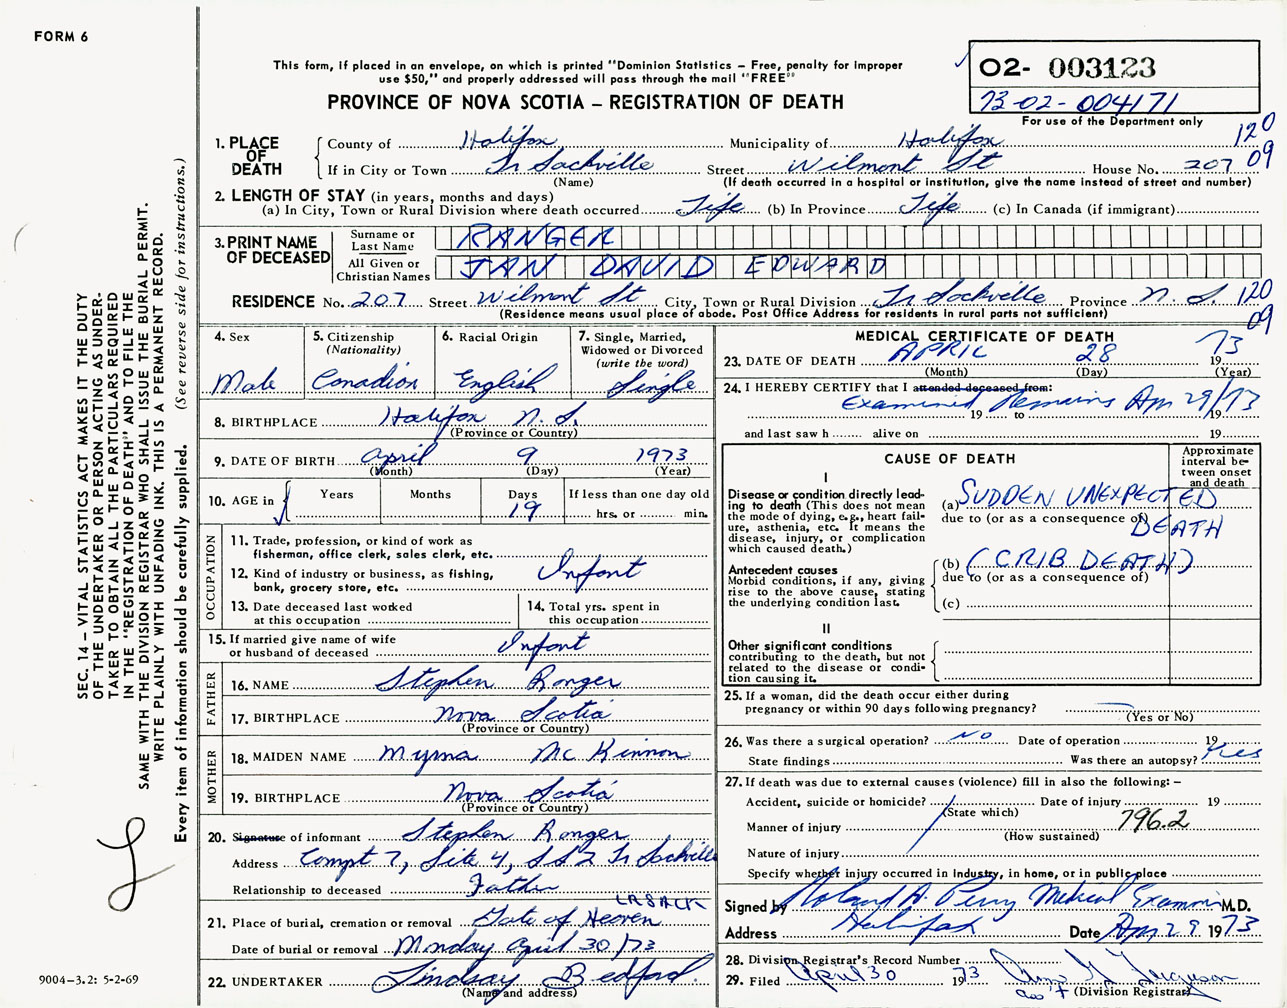 FORM 6
SEC. 14 – VITAL STATISTICS ACT MAKES IT THE DUTY
OF THE UNDERTAKER OR PERSON ACTING AS UNDER-
TAKER TO OBTAIN ALL THE PARTICULARS REQUIRED
IN THE "REGISTRATION OF DEATH" AND TO FILE THE
SAME WITH THE DIVISION REGISTRAR WHO SHALL ISSUE THE BURIAL PERMIT.
WRITE PLAINLY WITH UNFADING INK. THIS IS A PERMANENT RECORD.
Every item of information should be carefully supplied. (See reverse side for instructions.)
9004–3.2: 5-2-69
This form, if placed in an envelope, on which is printed "Dominion Statistics – Free, penalty for improper
use $50," and properly addressed will pass through the mail "FREE"
PROVINCE OF NOVA SCOTIA – REGISTRATION OF DEATH
02- 003123
73-02-004171
For use of the Department only
1. PLACE OF DEATH
County of Halifax Municipality of Halifax 120
If in City or Town Lr Sackville Street Wilmont St House No. 207 09
(Name) (If death occurred in a hospital or institution, give the name instead of street and number)
2. LENGTH OF STAY (in years, months and days)
(a) In City, Town or Rural Division where death occurred Life (b) In Province Life (c) In Canada (if immigrant)
3. PRINT NAME OF DECEASED
Surname or Last Name RANGER
All Given or Christian Names IAN DAVID EDWARD
RESIDENCE No. 207 Street Wilmont St City, Town or Rural Division Lr Sackville Province N.S. 120
(Residence means usual place of abode. Post Office Address for residents in rural parts not sufficient) 09
4. Sex Male
5. Citizenship (Nationality) Canadian
6. Racial Origin English
7. Single, Married, Widowed or Divorced (write the word) Single
8. BIRTHPLACE Halifax N.S.
(Province or Country)
9. DATE OF BIRTH April 9 1973
(Month) (Day) (Year)
10. AGE in Years Months Days 19 If less than one day old hrs. or min.
OCCUPATION
11. Trade, profession, or kind of work as
fisherman, office clerk, sales clerk, etc.
12. Kind of industry or business, as fishing, Infant
bank, grocery store, etc.
13. Date deceased last worked at this occupation
14. Total yrs. spent in this occupation
15. If married give name of wife Infant
or husband of deceased
FATHER
16. NAME Stephen Ranger
17. BIRTHPLACE Nova Scotia
(Province or Country)
MOTHER
18. MAIDEN NAME Myrna Mc Kinnon
19. BIRTHPLACE Nova Scotia
(Province or Country)
20. Signature of informant Stephen Ranger
Address Compt 7, Site 4, SS2 Lr Sackville
Relationship to deceased Father
21. Place of burial, cremation or removal Gate of Heaven LR SACK
Date of burial or removal Monday April 30/73
22. UNDERTAKER Lindsay Bedford
(Name and address)
MEDICAL CERTIFICATE OF DEATH
23. DATE OF DEATH APRIL 28 1973
(Month) (Day) (Year)
24. I HEREBY CERTIFY that I attended deceased from:
Examined Remains Apr 29/73
19 to 19
and last saw h alive on 19
CAUSE OF DEATH
Approximate interval between onset and death
I
Disease or condition directly lead-
ing to death (This does not
mean the mode of dying, e.g., heart fail-
ure, asthenia, etc. It means the
disease, injury, or complication
which caused death.)
(a) SUDDEN UNEXPECTED
due to (or as a consequence of) DEATH
Antecedent causes
Morbid conditions, if any, giving
rise to the above cause, stating
the underlying condition last.
(b) (CRIB DEATH)
due to (or as a consequence of)
(c)
II
Other significant conditions
contributing to the death, but not
related to the disease or condi-
tion causing it.
25. If a woman, did the death occur either during
pregnancy or within 90 days following pregnancy?
(Yes or No)
26. Was there a surgical operation? No Date of operation 19
State findings Was there an autopsy? Yes
27. If death was due to external causes (violence) fill in also the following: –
Accident, suicide or homicide? Date of injury 19
(State which)
Manner of injury 796.2
(How sustained)
Nature of injury
Specify whether injury occurred in Industry, in home, or in public place
Signed by Roland A. Perry Medical Examiner M.D.
Address Halifax Date Apr 29 1973
28. Division Registrar's Record Number
29. Filed April 30 1973
(Division Registrar)